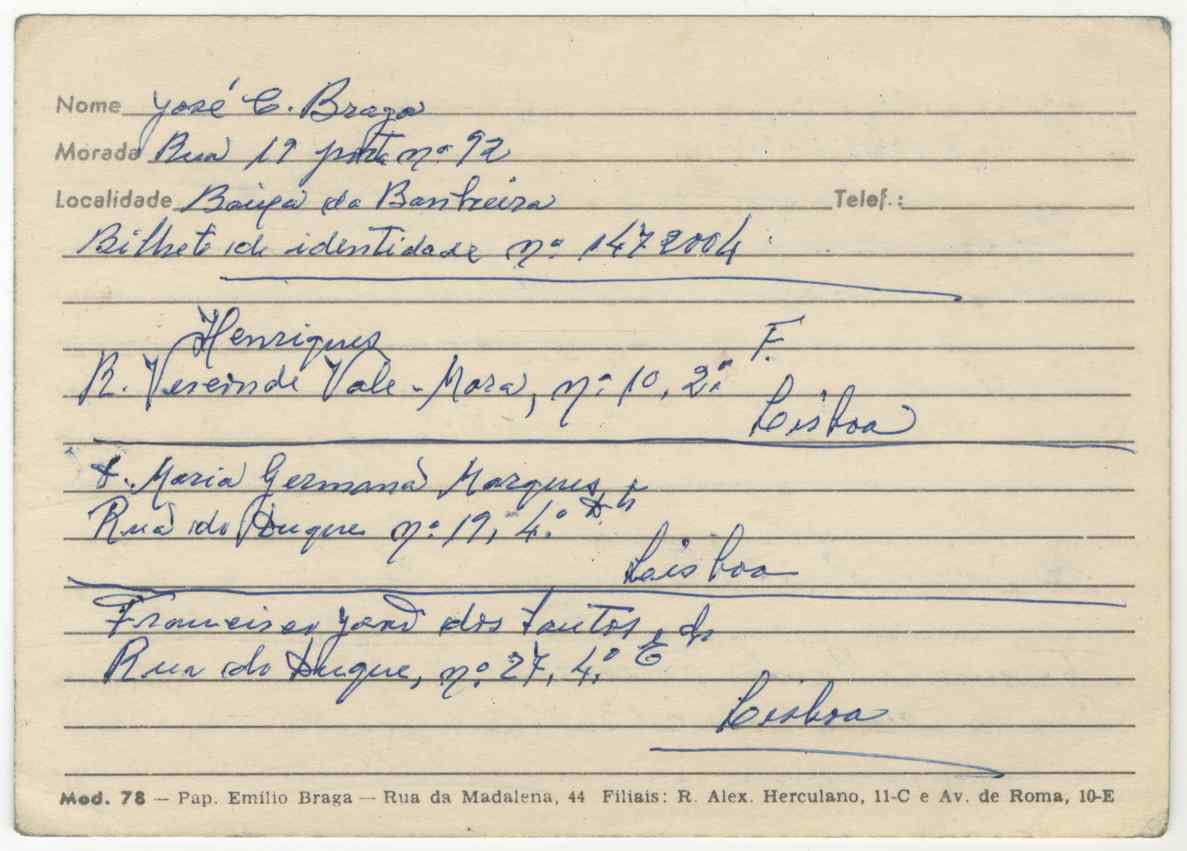 Nome José C. Braga
Morada Rua 19 porta nº 92
Localidade Baixa da Banheira Telef.:
Bilhete de identidade nº 1472004
Henriques
R. Vale-Mora, nº 10, 2º F.
Lisboa
D. Maria Germana Marques
Rua do Duque nº 19, 4.º
Lisboa
Francisco José dos Santos,
Rua do Duque, nº 27, 4.º E
Lisboa
Mod. 78 — Pap. Emílio Braga — Rua da Madalena, 44 Filiais: R. Alex. Herculano, 11-C e Av. de Roma, 10-E